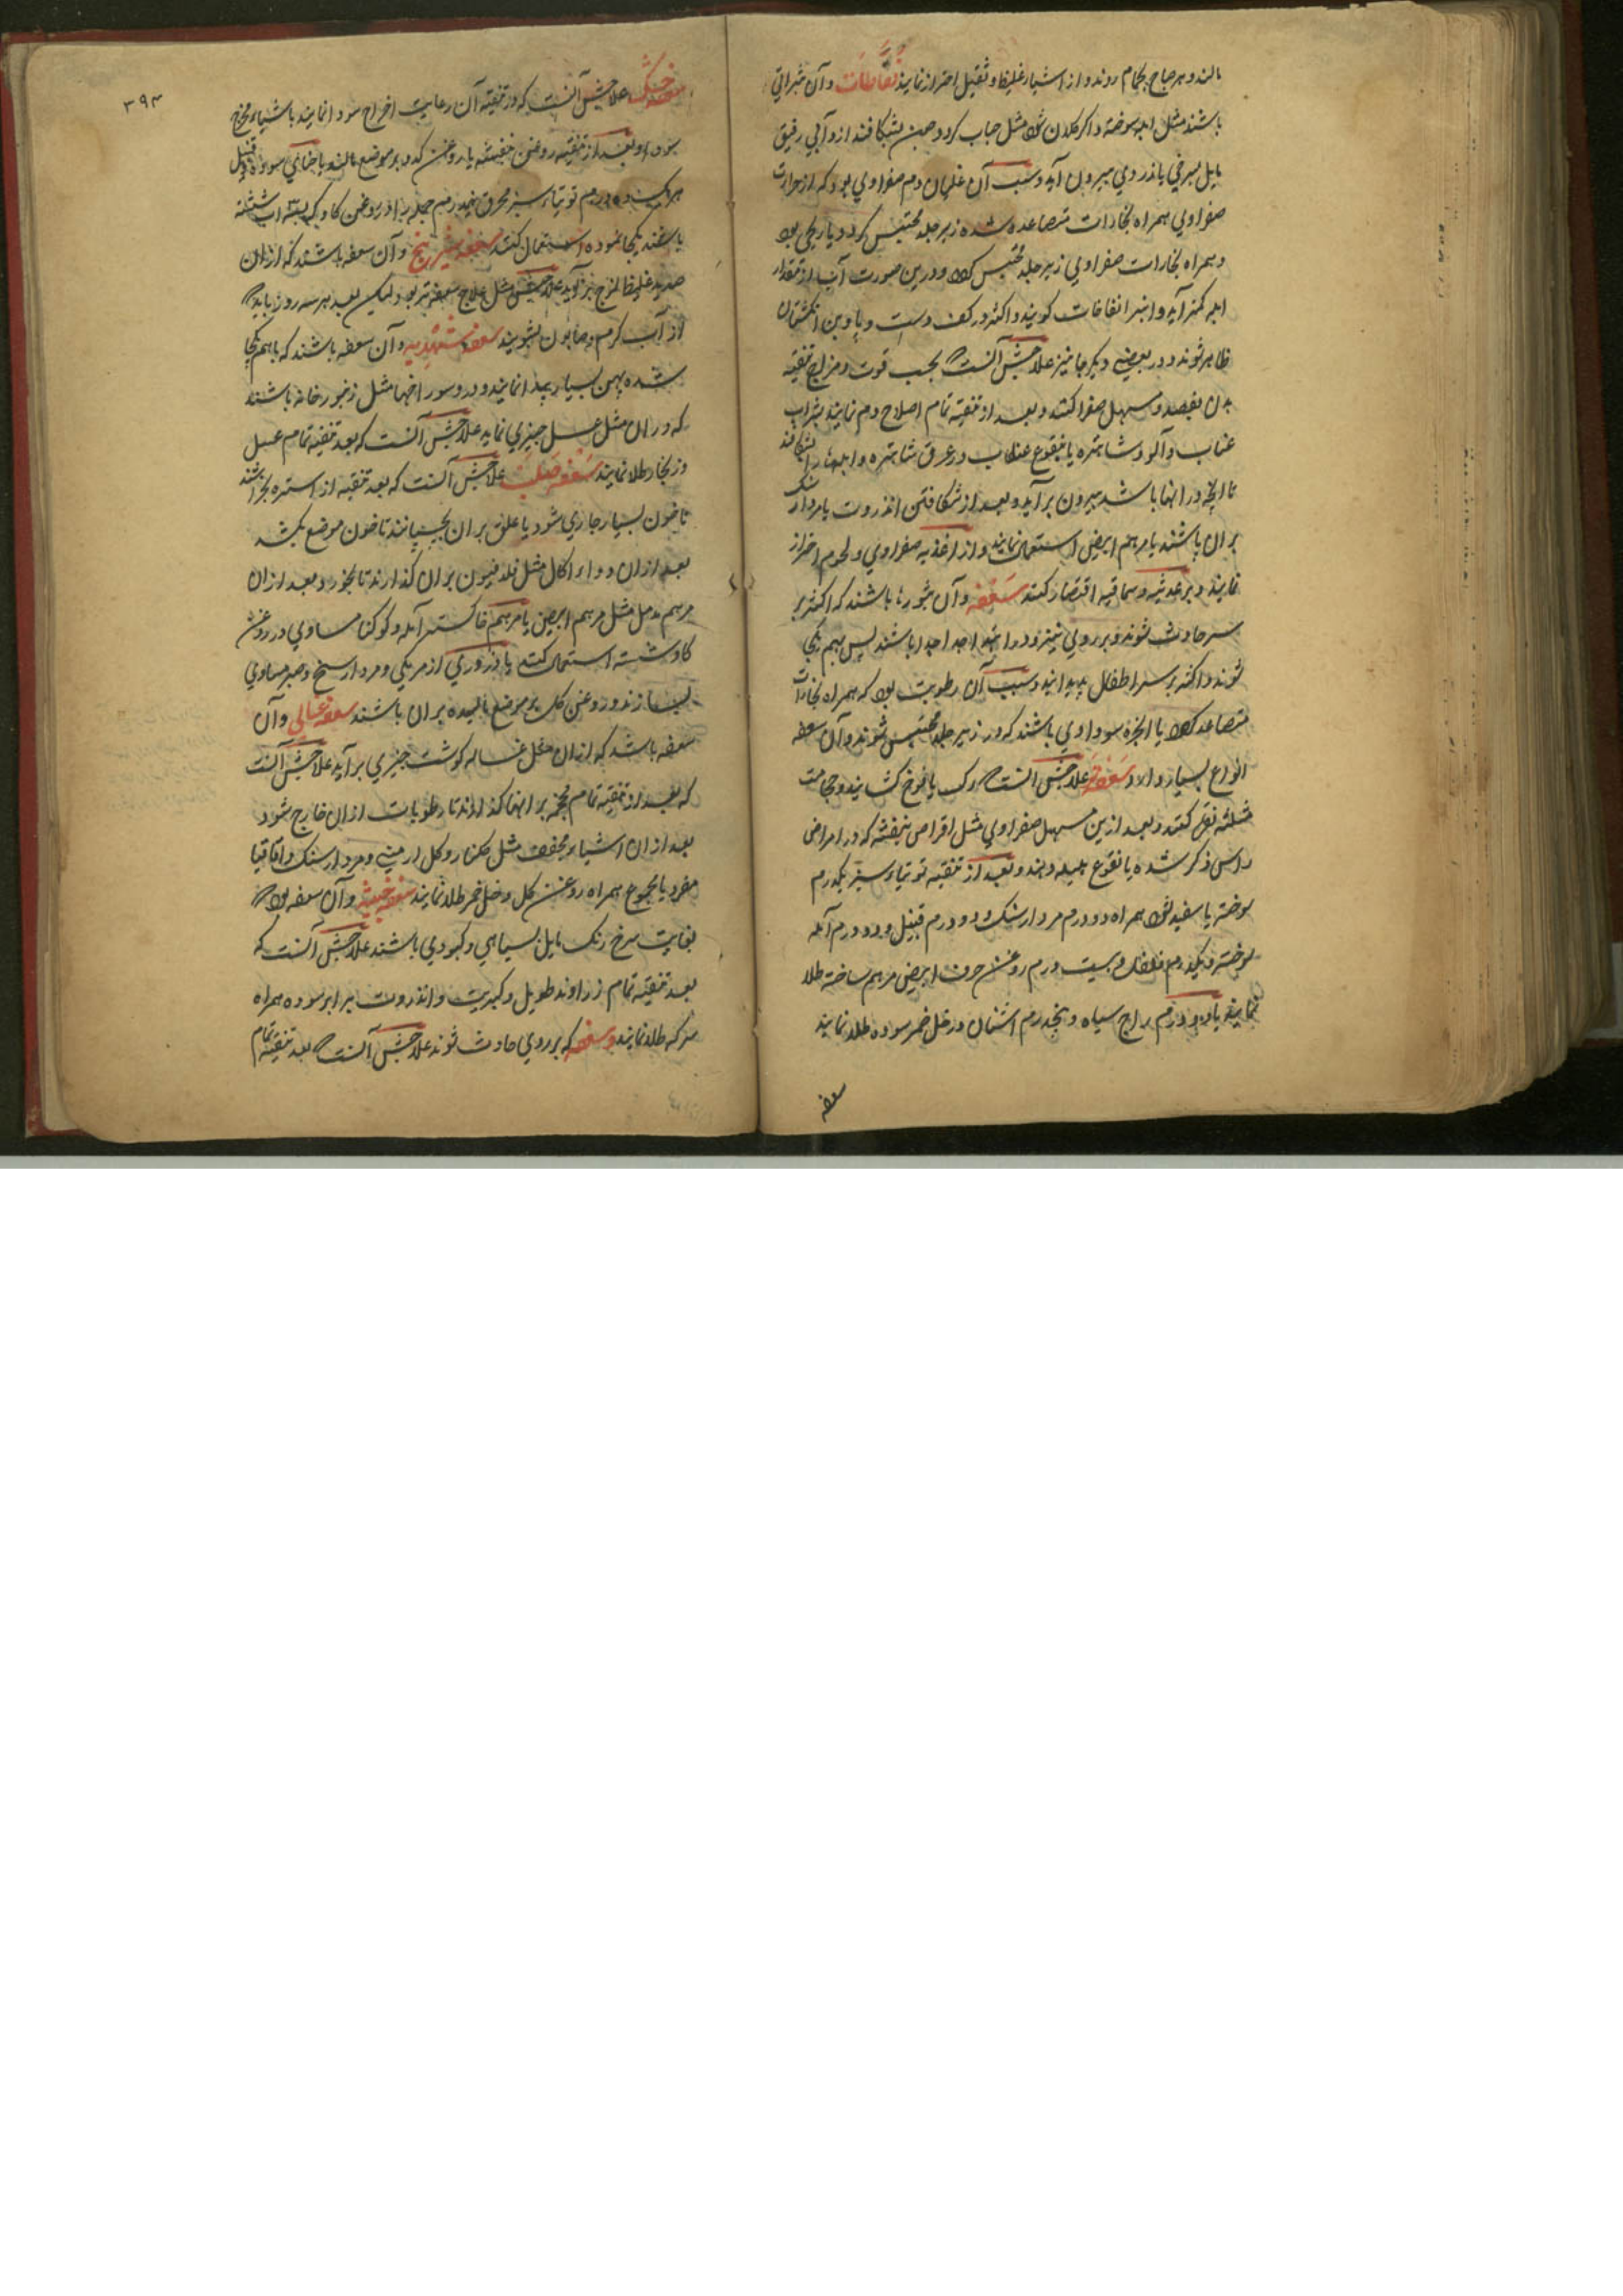 مالند و هر صباح بحمام روند و از اشیاء غلیظ و ثقیل احتراز نمایند نفاطات و آن بثراتی
باشند مثل ابله سوخته و اکر کلان شود مثل حباب کردد و چون بشکافند ازو آبی رقیق
مایل بسرخی یا زردی بیرون آید و سبب آن غلیان دم صفراوی بود که از حرارت
صفراوی همراه بخارات متصاعده شده زیر جلد محتبس کردد یا ریحی بود
و همراه بخارات صفراوی زیر جلد محتبس کردد و درین صورت آب از مقدار
ابله کمتر آید و اینرا نفاخات کویند و اکثر در کف دست و پا و بن انکشتان
ظاهر شوند و در بعضی دیکر جا نیز علاجش آنست که بحسب قوت و مزاج تنقیه
بدن بفصد و مسهل صفرا کنند و بعد از تنقیه تمام اصلاح دم نمایند بشراب
عناب و آلو و شاهتره یا بنقوع عناب در عرق شاهتره و ابلها را بشکافند
تا آنچه در آنها باشد بیرون برآید و بعد از شکافتن انزروت یا مردارسنک
بران پاشند یا مرهم ابیض استعمال نمایند و از اغذیه صفراوی و لحوم احتراز
نمایند و بر عدسیه و سماقیه اقتصار کنند سعفه و آن بثورها باشند که اکثر بر
سر حادث شوند و بر روی نیز و در ابتدا جدا جدا باشند پس بهم یکجا
شوند و اکثر بر سر اطفال پیدا آیند و سبب آن رطوبت بود که همراه بخارات
متصاعد کردد یا ابخره سوداوی باشند که در زیر جلد محتبس شوند و آن سعفه
انواع بسیار دارد سعفه تر علاجش آنست که رک یافوخ کشایند و حجامت
مثلثه نقره کنند و بعد ازین مسهل صفراوی مثل اقراص بنفشه که در امراض
راس ذکر شده یا نقوع هلیله دهند و بعد از تنقیه توتیاء سبز یکدرم
سوخته یا سفید شود همراه دو درم مردارسنک و دو درم قنبیل و دو درم آمله
سوخته و یکدرم فلفل و بیست درم روغن حرف ابیض مرهم ساخته طلا
نمایند یا دو درم براج سیاه و پنجدرم اشنان در خل خمر سوده طلا نمایند
سعفه
۳۹۳
سعفه خشک علاجش آنست که در تنقیه آن رعایت اخراج سودا نمایند باشیاء مخرج
سودا و بعد از تنقیه روغن بنفشه یا روغن کدو بر موضع مالند یا حنای سوده و قنبیل
هر یک ده درم توتیاء سبز محرق نیمدرم جمله را در روغن کاو که بسته آب شسته
باشند یکجا نموده استعمال کنند سعفه شیرینج و آن سعفه باشند که ازان
صدید غلیظ لزج برآید علاجش مثل علاج سعفه تر بود لیکن بعد هر سه روز باید که
از آب کرم و صابون بشویند سعفه شهدیه و آن سعفه باشند که باهم یکجا
شده پهن بسیار پیدا نمایند و در و سوراخها مثل زنبور خانه باشند
که در ان مثل عسل چیزی نماید علاجش آنست که بعد تنقیه تمام عسل
و زنجار طلا نمایند سعفه صلب علاجش آنست که بعد تنقیه از استره بخراشند
تا خون بسیار جاری شود یا علق بران بچسپانند تا خون موضع بکشد
بعد ازان دواء اکال مثل فلدفیون بران کذارند تا بخورد و بعد ازان
مرهم مدمل مثل مرهم ابیض یا مرهم خاکستر آمله و کوکنار مساوی در روغن
کاو شسته استعمال کنند یا ذروری از مر مکی و مردارسنج و صبر مساوی
بسازند و روغن کل بر موضع مالیده بران پاشند سعفه غسالی و آن
سعفه باشد که ازان مثل غساله کوشت چیزی برآید علاجش آنست
که بعد از تنقیه تمام پنبه برانها کذارند تا رطوبات ازان خارج شود
بعد ازان اشیاء مجفف مثل کلنار و کل ارمنی و مردارسنک و اقاقیا
مفرد یا مجموع همراه روغن کل و خل خمر طلا نمایند سعفه خبیثه و آن سعفه بود که
بغایت سرخ رنک مایل بسیاهی و کبودی باشند علاجش آنست که
بعد تنقیه تمام زراوند طویل و کبریت و انزروت برابر سوده همراه
سرکه طلا نمایند و سعفه که بر روی حادث شوند علاجش آنست که بعد تنقیه تمام